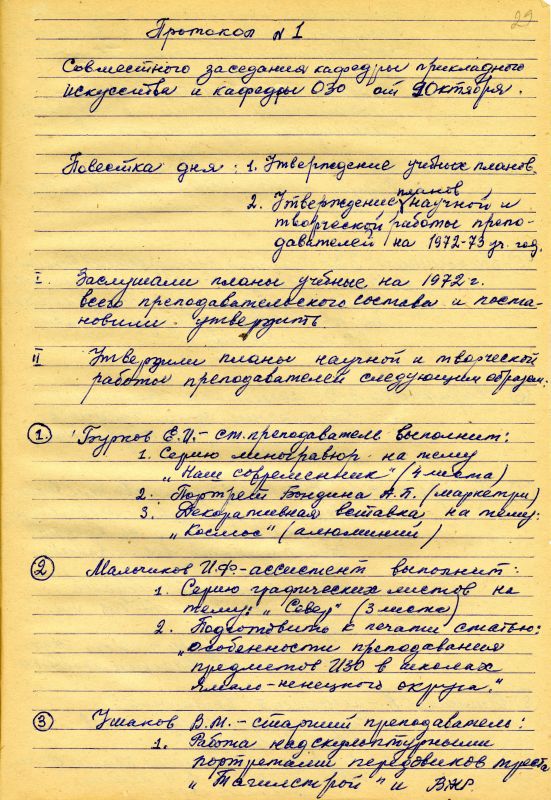 29
Протокол № 1
Совместного заседания кафедры прикладного
искусства и кафедры ОЗО от 9 Октября.
Повестка дня: 1. Утверждение учебных планов.
планов
2. Утверждение научной и
творческой работы препо-
давателей на 1972-73 уч. год.
I. Заслушали планы учебные на 1972 г.
всего преподавательского состава и поста-
новили утвердить.
II Утвердили планы научной и творческой
работы преподавателей следующим образом:
1. Бурков Е.И. - ст. преподаватель выполнит:
1. Серию линогравюр на тему
„Наш современник" (4 листа)
2. Портрет Бондина А.П. (маркетри)
3. Декоративная вставка на тему:
„Космос" (алюминий)
2 Мальчиков И.Ф. - ассистент выполнит:
1. Серию графических листов на
тему: „Север" (3 листа)
2. Подготовить к печати статью:
„Особенности преподавания
предметов ИЗО в школах
Ямало-ненецкого округа."
3 Ушаков В.М. - старший преподаватель:
1. Работа над скульптурными
портретами передовиков треста
„Тагилстрой" и